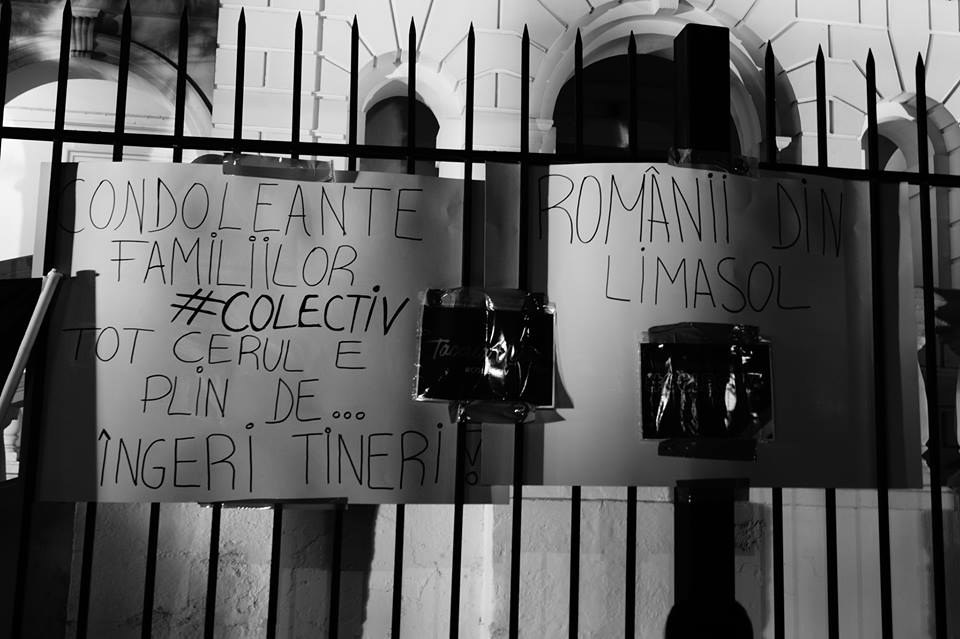 CONDOLEANTE
FAMILIILOR
#COLECTIV
TOT CERUL E
PLIN DE...
ÎNGERI TINERI!
ROMÂNII DIN
LIMASOL